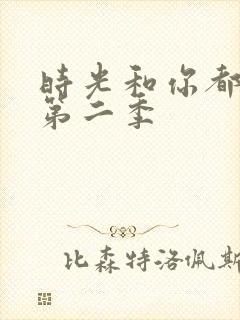 時光和你都
第二季
比森特洛佩斯